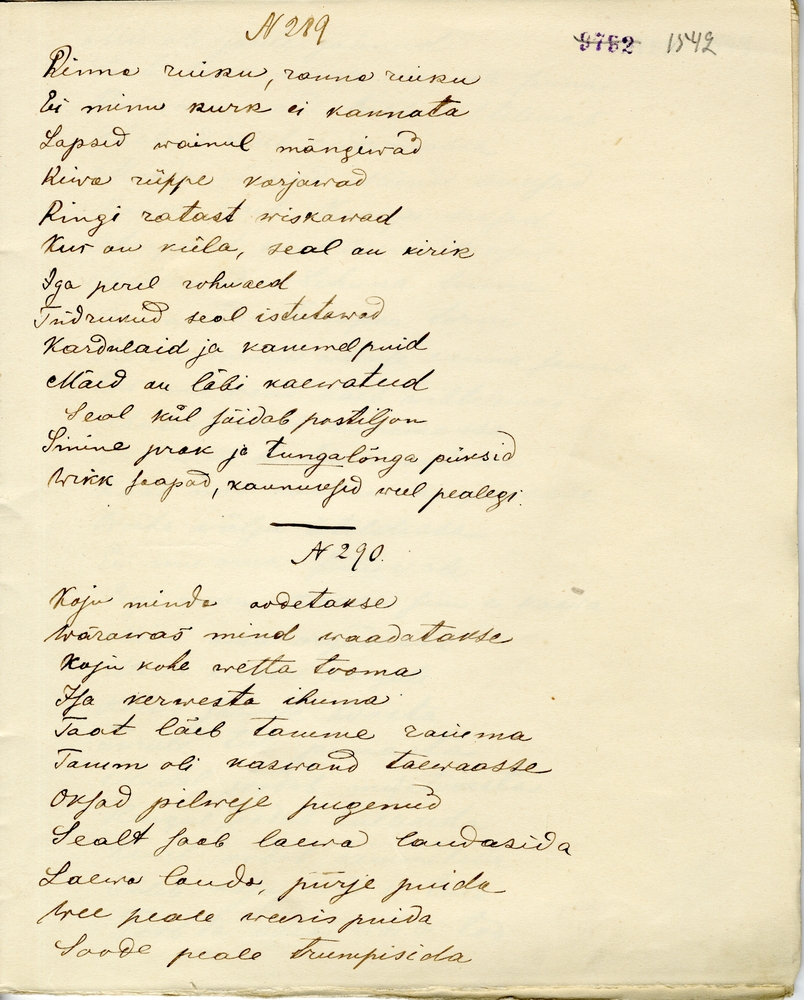 N 289
9782 1542
Rinna ruiku, ranna ruiku
Ei minu kurk ei kannata
Lapsed wainul mängiwad
Kiwa rüppe korjawad
Ringi ratast wiskawad
Kus on küla, seal on kirik
Iga perel rohuaed
Tüdrukud seal istutawad
Kardulaid ja kanumelpuid
Mäed on läbi kaewatud
Seal kül sõidab postiljon
Sinine prak ja tungalõnga püksid
Wikk saapad, kaunukesed weel pealegi.
N 290.
Koju minda oodetakse
Wärawas mind waadatakse
Koju kohe wetta tooma
Isa kerwesta ihuma
Taat läeb tamme raiuma
Tamm oli kaswand taewaasse
Oksad pilweje pugenud
Sealt saab laewa laudasida
Laewa lauda, pürje puida
Wee peale weerispuida
Soode peale trumpisida